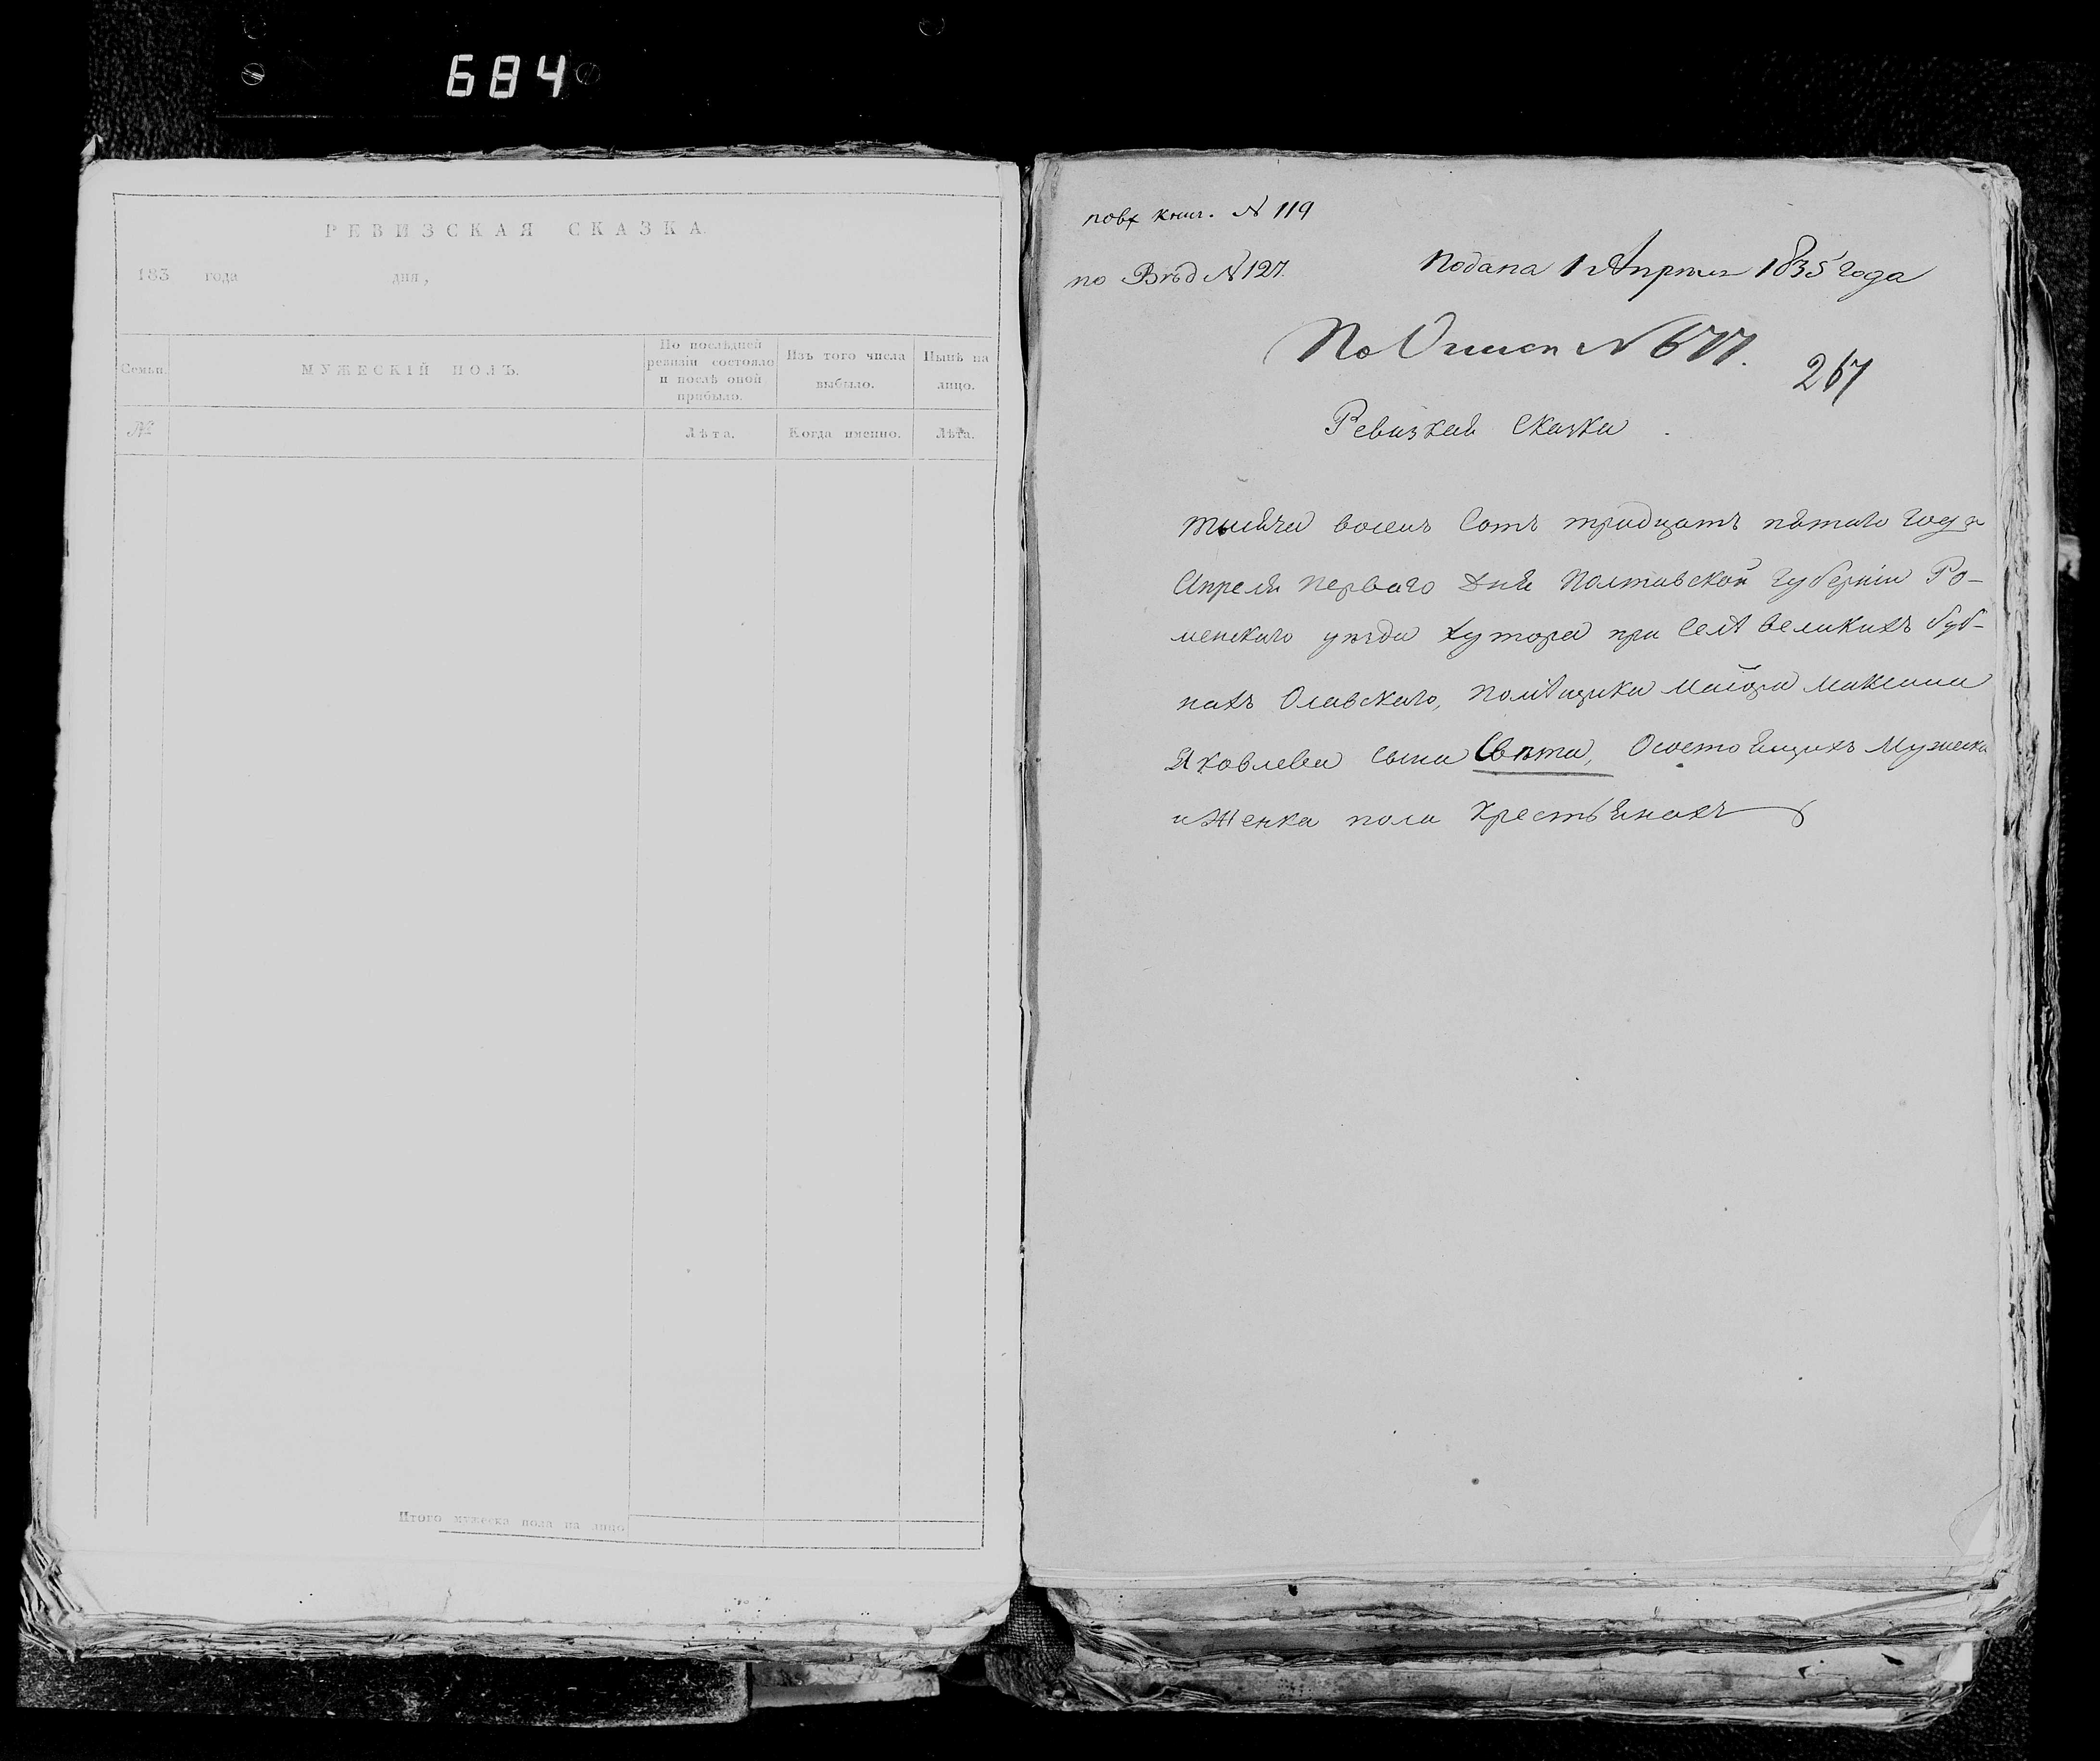 684
РЕВИЗСКАЯ СКАЗКА.
183 года дня,
Семьи.
МУЖЕСКІЙ ПОЛЪ.
По послѣдней
ревизіи состояло
и послѣ оной
прибыло.
Изъ того числа
выбыло.
Нынѣ на
лицо.
№
Лѣта.
Когда именно.
Лѣта.
Итого мужеска пола на лицо
по вх книг. № 119
по Вѣд № 127.
Подана 1 Апреля 1835 года
По Описи № 677.
267
Ревизкая Сказка
тысяча восемъ Сотъ тридцатъ пятаго года
Апреля перваго дня Полтавской губерніи Ро-
менскаго уезда хутора при селѣ великихъ буб-
нахъ Олавскаго, помѣщика маіора максима
Яковлева сына Свѣта, Осостоящихъ Мужеска
и Женка пола крестьянахъ